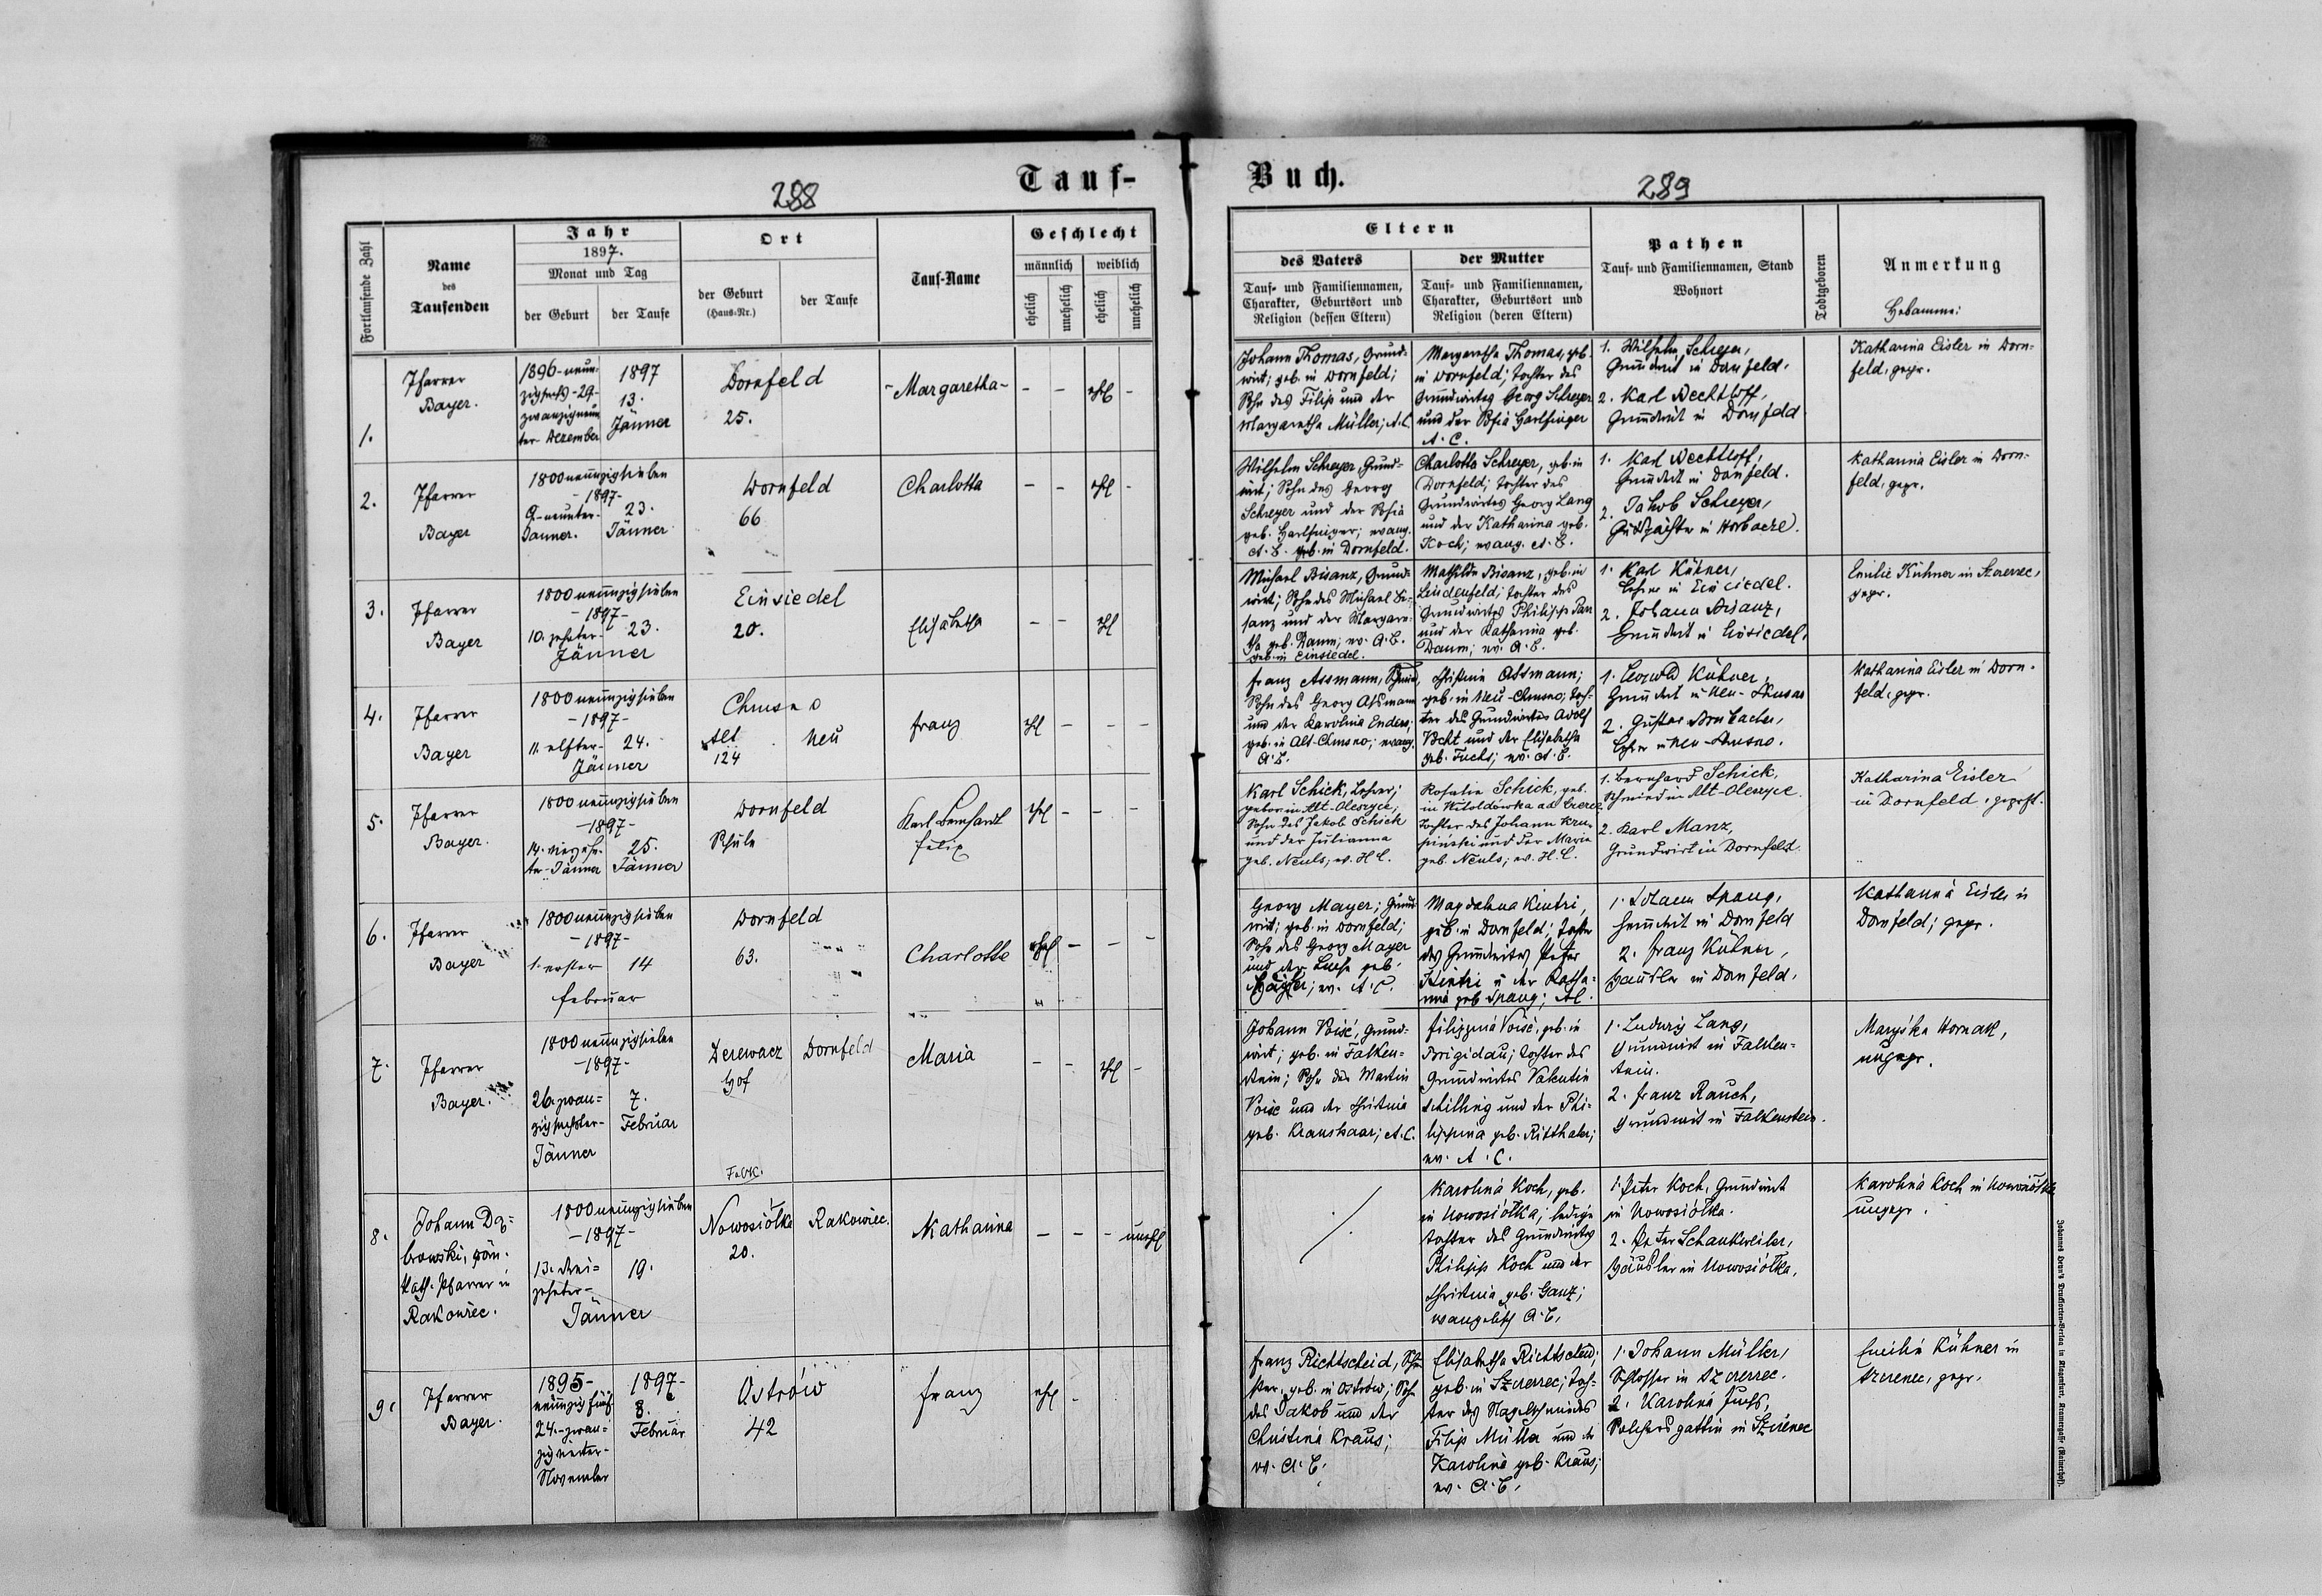 Tauf-
Buch.
288
289
Fortlaufende Zahl
Name
des
Taufenden
Jahr
1897.
Monat und Tag
der Geburt
der Taufe
Ort
der Geburt
(Haus-Nr.)
der Taufe
Tauf-Name
Geschlecht
männlich
weiblich
ehelich
unehelich
ehelich
unehelich
Eltern
des Vaters
Tauf- und Familiennamen,
Charakter, Geburtsort und
Religion (dessen Eltern)
der Mutter
Tauf- und Familiennamen,
Charakter, Geburtsort und
Religion (deren Eltern)
Pathen
Tauf- und Familiennamen, Stand
Wohnort
Todtgeboren
Anmerkung
Hebamme:
1.
Pfarrer
Bayer.
1896-neun-
zigsechs-29-
zwanzigneun
ter Dezember
1897
13.
Jänner
Dornfeld
25.
- Margaretha -
- - ehl -
Johann Thomas, Grund-
wirt; geb. in Dornfeld;
Sohn des Filip und der
Margaretha Müller; A.C.
Margaretha Thomas, geb.
in Dornfeld; Tochter des
Grundwirtes Georg Schreyer
und der Sofia Harlfinger
A. C.
1. Wilhelm Schreyer,
Grundwirt in Dornfeld.
2. Karl Bechtloff,
Grundwirt in Dornfeld
Katharina Eisler in Dorn-
feld, gepr.
2.
Pfarrer
Bayer
1800neunzigsieben
-1897-
9-neunter-
Jänner.
23.
Jänner
Dornfeld
66
Charlotta
- - ehl -
Wilhelm Schreyer, Grund-
wirt; Sohn des Georg
Schreyer und der Sofia
geb. Harlfinger; evang.
A. C. geb. in Dornfeld.
Charlotta Schreyer, geb. in
Dornfeld; Tochter des
Grundwirtes Georg Lang
und der Katharina geb.
Koch; evang. A. C.
1. Karl Bechtloff,
Grundwirt in Dornfeld.
2. Jakob Schreyer,
Gutspächter in Horbacze.
Katharina Eisler in Dorn-
feld, gepr.
3.
Pfarrer
Bayer
1800neunzigsieben
-1897-
10. zehnter-
23.
Jänner
Einsiedel
20.
Elisabetha
- - ehl
Michael Bisanz, Grund-
wirt; Sohn des Michael Bi-
sanz und der Margare-
tha geb. Daum; ev. A. C.
geb. in Einsiedel.
Mathilda Bisanz, geb. in
Lindenfeld; Tochter des
Grundwirtes Philipp
und der Katharina geb.
Daum; ev. A. C.
1. Karl Kühner,
Lehrer in Einsiedel.
2. Johann Bisanz,
Grundwirt in Einsiedel.
Emilie Kühner in Szczerzec,
gepr.
4.
Pfarrer
Bayer
1800neunzigsieben
-1897-
11. elfter-
24.
Jänner
Chrusno
Alt
124
Neu
Franz
ehl - - -
Franz Assmann, Schmied,
Sohn des Georg Assmann
und der Karolina Enders;
geb. in Alt-Chrusno; evang.
A. C.
Christina Assmann;
geb. in Neu-Chrusno; Toch-
ter des Grundwirtes Adolf
und der Elisabetha
geb. Fuchs; ev. A. C.
1. Leopold Kühner,
Grundwirt in Neu-Chrusno
2. Gustav Brubacher,
Lehrer in Neu-Chrusno.
Katharina Eisler in Dorn-
feld, gepr.
5.
Pfarrer
Bayer.
1800neunzigsieben
-1897-
14. vierzehn-
ter-Jänner
25.
Jänner
Dornfeld
Schule
Karl Bernhardt
Felix
ehl - - -
Karl Schick, Lehrer;
geboren in Alt-Oleszyce;
Sohn des Jakob Schick
und der Julianna
geb. Neuls; ev. H. C.
Rosalia Schick, geb.
in Witoldówka ad
Tochter des Johann Kru-
pinski und der Maria
geb. Neuls; ev. H. C.
1. Bernhard Schick,
Schmied in Alt-Oleszyce
2. Karl Manz,
Grundwirt in Dornfeld.
Katharina Eisler
in Dornfeld, geprft.
6.
Pfarrer
Bayer
1800neunzigsieben
-1897-
1. erster
14
Februar
Dornfeld
63.
Charlotte
ehl - - -
Georg Mayer; Grund-
wirt; geb. in Dornfeld;
Sohn des Georg Mayer
und der Luise geb.
ev. A. C.
Magdalena Kintzi,
geb. in Dornfeld; Tochter
des Grundwirtes Peter
Kintzi u. der Katha-
rina geb. Spaug; AC.
1. Johann Spaug,
Grundwirt in Dornfeld
2. Franz Kühner,
Häusler in Dornfeld.
Katharina Eisler in
Dornfeld; gepr.
7.
Pfarrer
Bayer.
1800neunzigsieben
-1897-
26. zwan-
zigsechster-
Jänner
7.
Februar
Derewacz
Hof
Falk.
Dornfeld
Maria
- - ehl -
Johann Voisé, Grund-
wirt; geb. in Falken-
stein; Sohn des Martin
Voisé und der Christina
geb. Kraushaar; A. C.
Filippina Voisé, geb. in
Brigidau; Tochter des
Grundwirtes Valentin
Schilling und der Phi-
lippina geb. Ritthaler;
ev. A. C.
1. Ludwig Lang,
Grundwirt in Falken-
stein.
2. Franz Rauch,
Grundwirt in Falkenstein.
Maryśka Hornak,
ungepr.
8.
Johann Dą-
browski, röm.
kath. Pfarrer in
Rakowiec.
1800neunzigsieben
-1897-
13. drei-
zehnter-
19.
Jänner
Nowosiółka
20.
Rakowiec.
Katharina
- - - unehl
Karolina Koch, geb.
in Nowosiółka; ledige
Tochter des Grundwirtes
Philipp Koch und der
Christina geb. Ganz;
evangelisch A. C.
1. Peter Koch, Grundwirt
in Nowosiółka.
2. Peter Schankweiler,
Häusler in Nowosiółka.
Karolina Koch in Nowosiółka
ungepr.
9.
Pfarrer
Bayer.
1895-
neunzigfünf
24.-zwan-
zigvierter-
November
1897-
8.
Februar
Ostrów
42
Franz
ehl -
Franz Richtscheid, Schu-
ster, geb. in Ostrów; Sohn
des Jakob und der
Christina Kraus;
ev. A. C.
Elisabetha Richtscheid;
geb. in Szczerzec; Toch-
ter des Nagelschmiedes
Filip Müller und der
Karolina geb. Kraus;
ev. A. C.
1. Johann Müller,
Schlosser in Szczerzec.
2. Karolina Fuchs,
gattin in Szczerzec
Emilie Kühner in
Szczerzec, gepr.
Johannes Heyn's Drucksorten-Verlag in Klagenfurt, Kramergasse (Rainerhof).